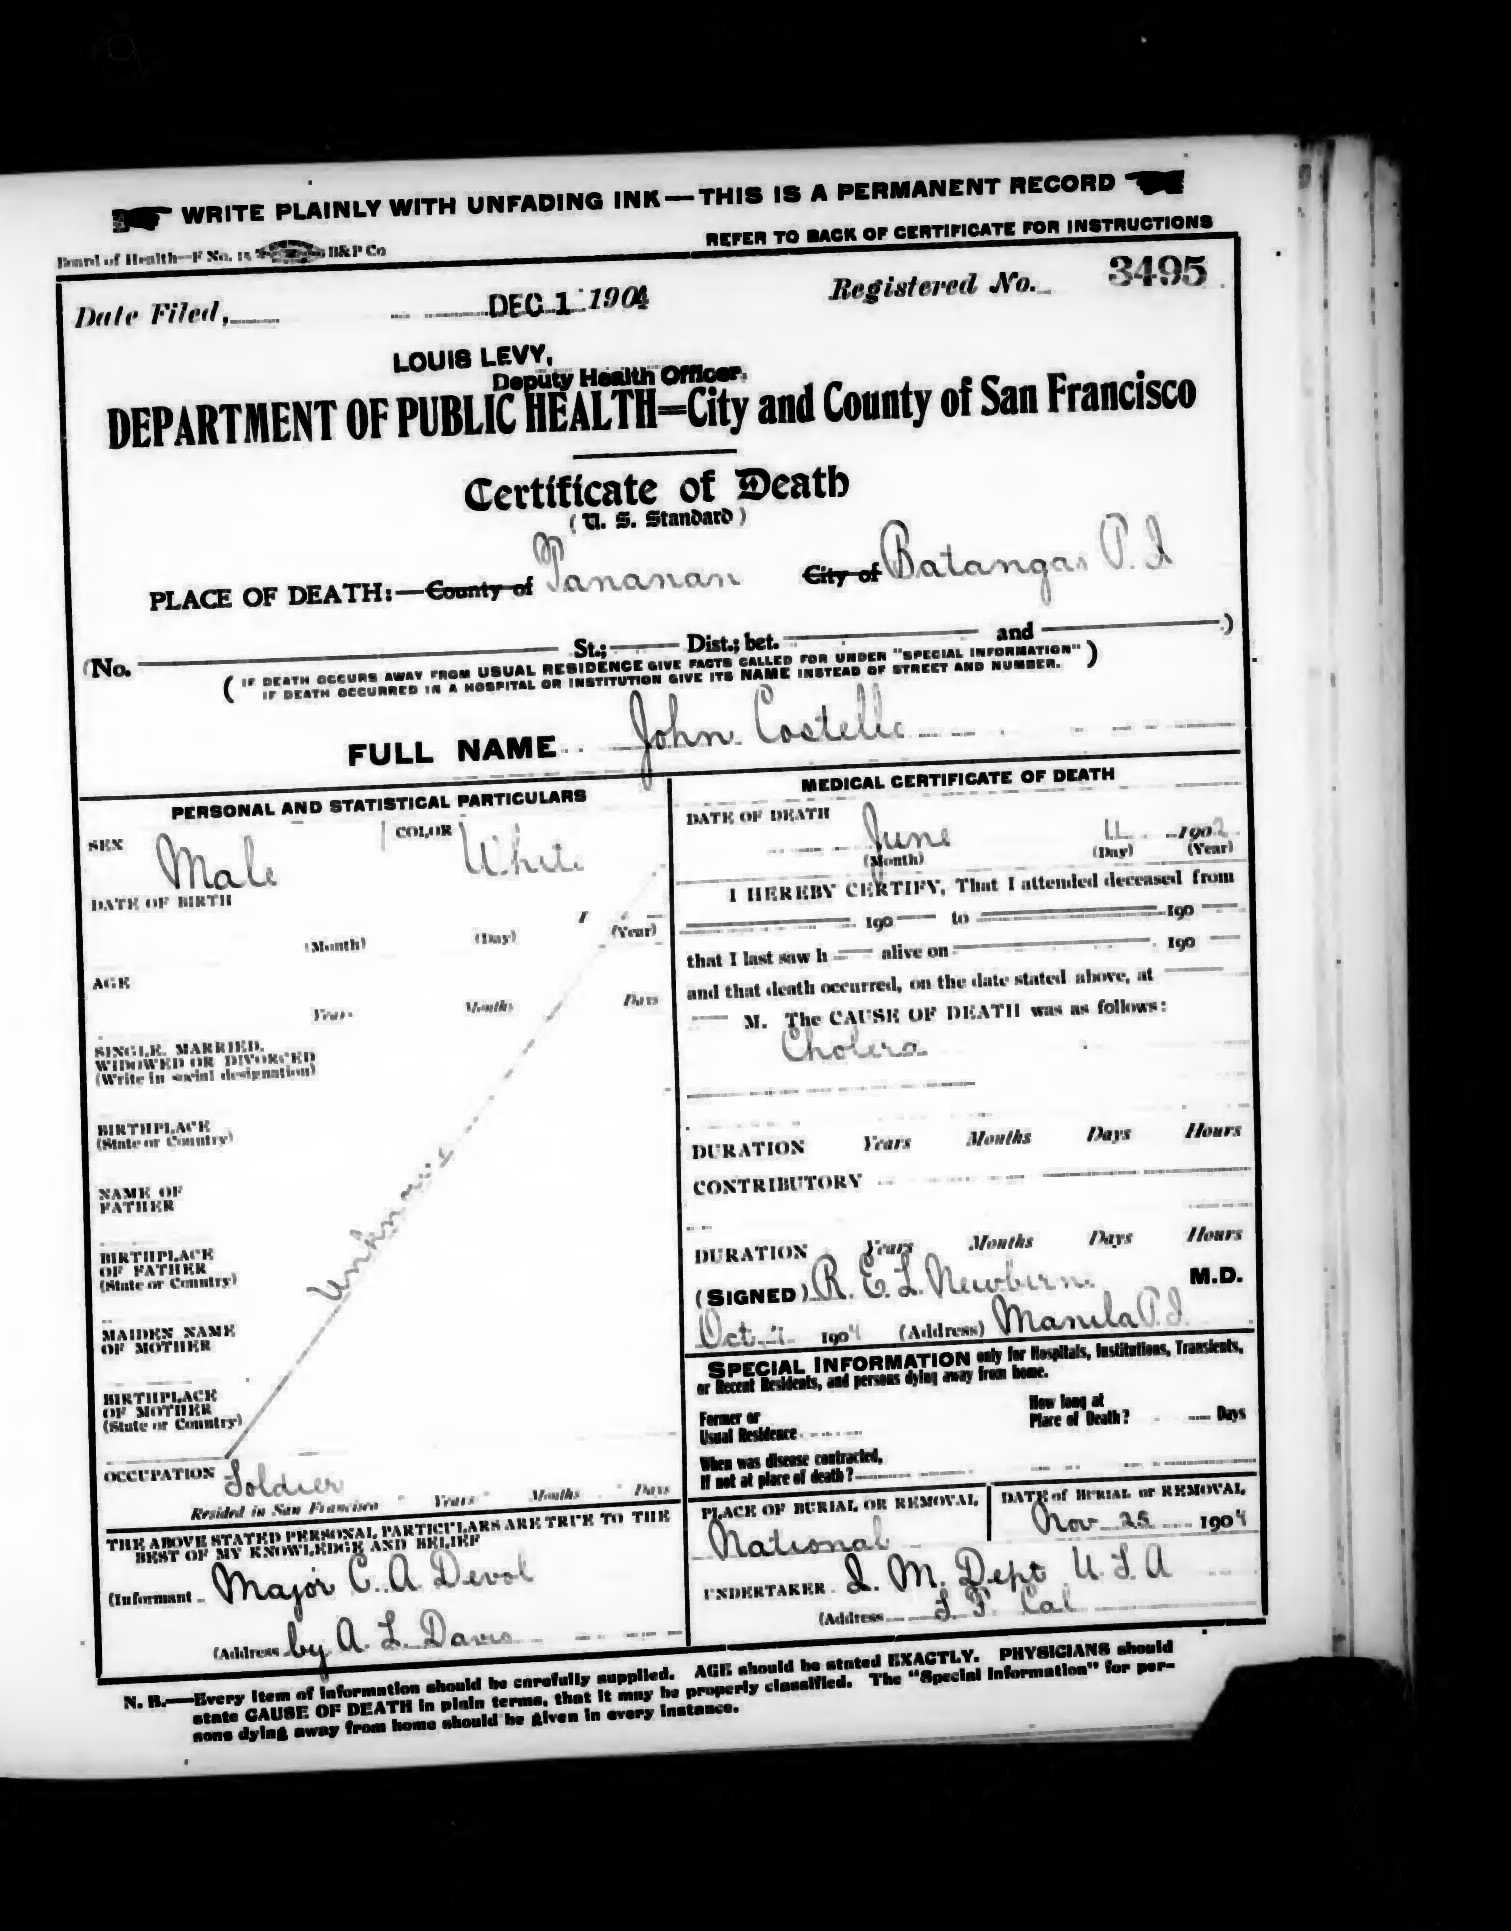 WRITE PLAINLY WITH UNFADING INK—THIS IS A PERMANENT RECORD
Board of Health—F No. 15 H&P Co
REFER TO BACK OF CERTIFICATE FOR INSTRUCTIONS
Date Filed, DEC 1 1904
Registered No. 3495
LOUIS LEVY,
Deputy Health Officer.
DEPARTMENT OF PUBLIC HEALTH=City and County of San Francisco
Certificate of Death
(U. S. Standard)
PLACE OF DEATH:—County of Tananan City of Batangas P. I
(No. St.; Dist.; bet. and )
(IF DEATH OCCURS AWAY FROM USUAL RESIDENCE GIVE FACTS CALLED FOR UNDER "SPECIAL INFORMATION"
IF DEATH OCCURRED IN A HOSPITAL OR INSTITUTION GIVE ITS NAME INSTEAD OF STREET AND NUMBER.)
FULL NAME John Costello
PERSONAL AND STATISTICAL PARTICULARS
SEX Male COLOR White
DATE OF BIRTH
1
(Month) (Day) (Year)
AGE
Years Months Days
SINGLE, MARRIED,
WIDOWED OR DIVORCED
(Write in social designation)
BIRTHPLACE
(State or Country)
NAME OF
FATHER
Unknown
BIRTHPLACE
OF FATHER
(State or Country)
MAIDEN NAME
OF MOTHER
BIRTHPLACE
OF MOTHER
(State or Country)
OCCUPATION Soldier
Resided in San Francisco Years Months Days
THE ABOVE STATED PERSONAL PARTICULARS ARE TRUE TO THE
BEST OF MY KNOWLEDGE AND BELIEF
(Informant Major C. A. Devol
(Address by A. L. Davis
MEDICAL CERTIFICATE OF DEATH
DATE OF DEATH
June 11 1902
(Month) (Day) (Year)
I HEREBY CERTIFY, That I attended deceased from
190 to 190
that I last saw h alive on 190
and that death occurred, on the date stated above, at
M. The CAUSE OF DEATH was as follows:
Cholera
DURATION Years Months Days Hours
CONTRIBUTORY
DURATION Years Months Days Hours
(SIGNED) R. E. L. Newberne M.D.
Oct. 1904 (Address) Manila P. I.
SPECIAL INFORMATION only for Hospitals, Institutions, Transients,
or Recent Residents, and persons dying away from home.
Former or
Usual Residence
How long at
Place of Death? Days
When was disease contracted,
If not at place of death?
PLACE OF BURIAL OR REMOVAL
National
DATE of BURIAL or REMOVAL
Nov 25 1904
UNDERTAKER Q. M. Dept U. S. A
(Address S. F. Cal
N. B.—Every item of information should be carefully supplied. AGE should be stated EXACTLY. PHYSICIANS should
state CAUSE OF DEATH in plain terms, that it may be properly classified. The "Special Information" for per-
sons dying away from home should be given in every instance.